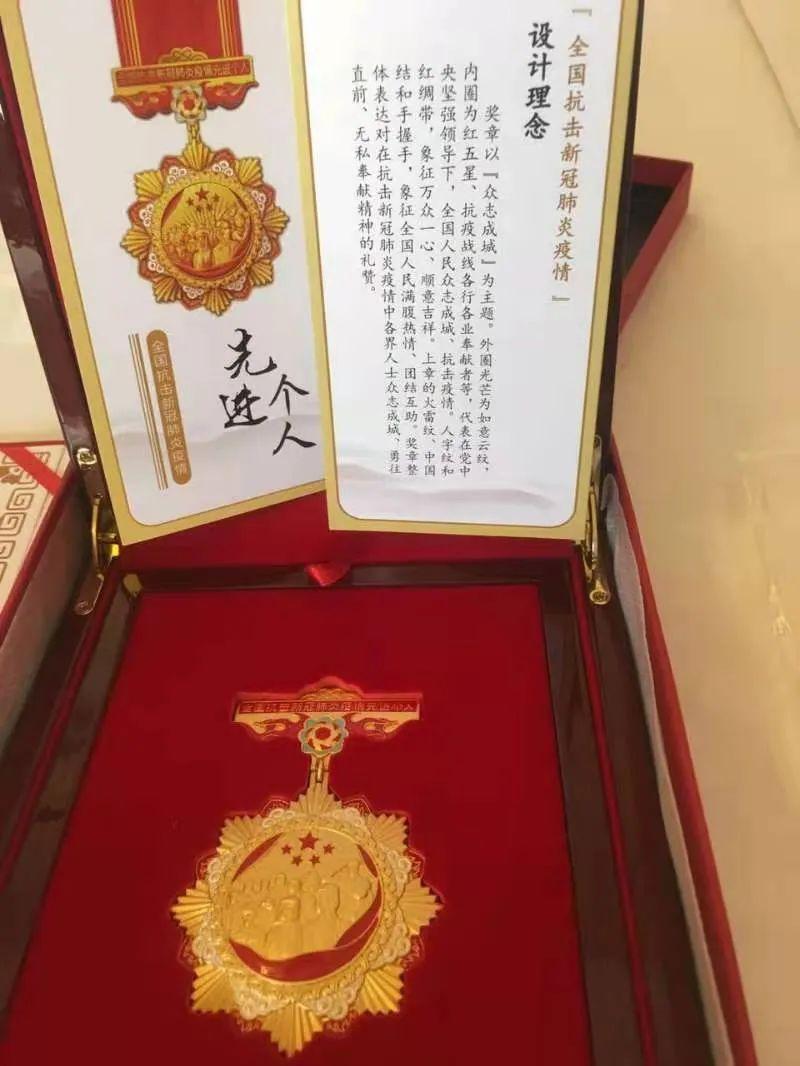 『全国抗击新冠肺炎疫情』
设计理念
奖章以『众志成城』为主题。外圈光芒为如意云纹，
内圈为红五星、抗疫战线各行各业奉献者等，代表在党中
央坚强领导下，全国人民众志成城、抗击疫情。人字纹和
红绸带，象征万众一心、顺意吉祥。上章的火雷纹、中国
结和手握手，象征全国人民满腹热情、团结互助。奖章整
体表达对在抗击新冠肺炎疫情中各界人士众志成城、勇往
直前、无私奉献精神的礼赞。
全国抗击新冠肺炎疫情先进个人
先进
个人
全国抗击新冠肺炎疫情
全国抗击新冠肺炎疫情先进个人